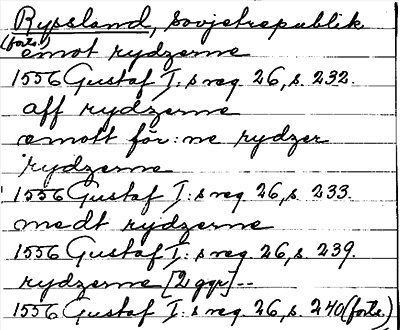 Ryssland, Sovjetrepublik
(forts.) emot rydzerne
1556 Gustaf I:s reg. 26, s. 232.
aff rydzerne
emott för:ne rydzer
rydzerne
1556 Gustaf I:s reg. 26, s. 233.
medt rydzerne
1556 Gustaf I:s reg. 26, s. 239.
rydzerne [2 ggr] --
1556 Gustaf I:s reg. 26, s. 240 (forts.)